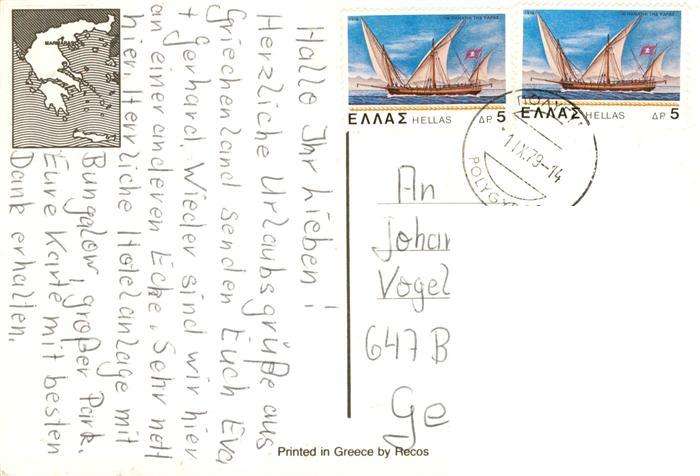 Hallo Ihr Lieben!
Herzliche Urlaubsgrüße aus
Griechenland senden Euch Eva
+ Gerhard. Wieder sind wir hier
an einer anderen Ecke. Sehr nett
hier. Herrliche Hotelanlage mit
Bungalow, großer Park.
Eure Karte mit besten
Dank erhalten.
ΕΛΛΑΣ HELLAS ΔΡ 5
ΕΛΛΑΣ HELLAS ΔΡ 5
1 IX.79-14
An
Johan
Vogel
647 B
Ge
Printed in Greece by Recos